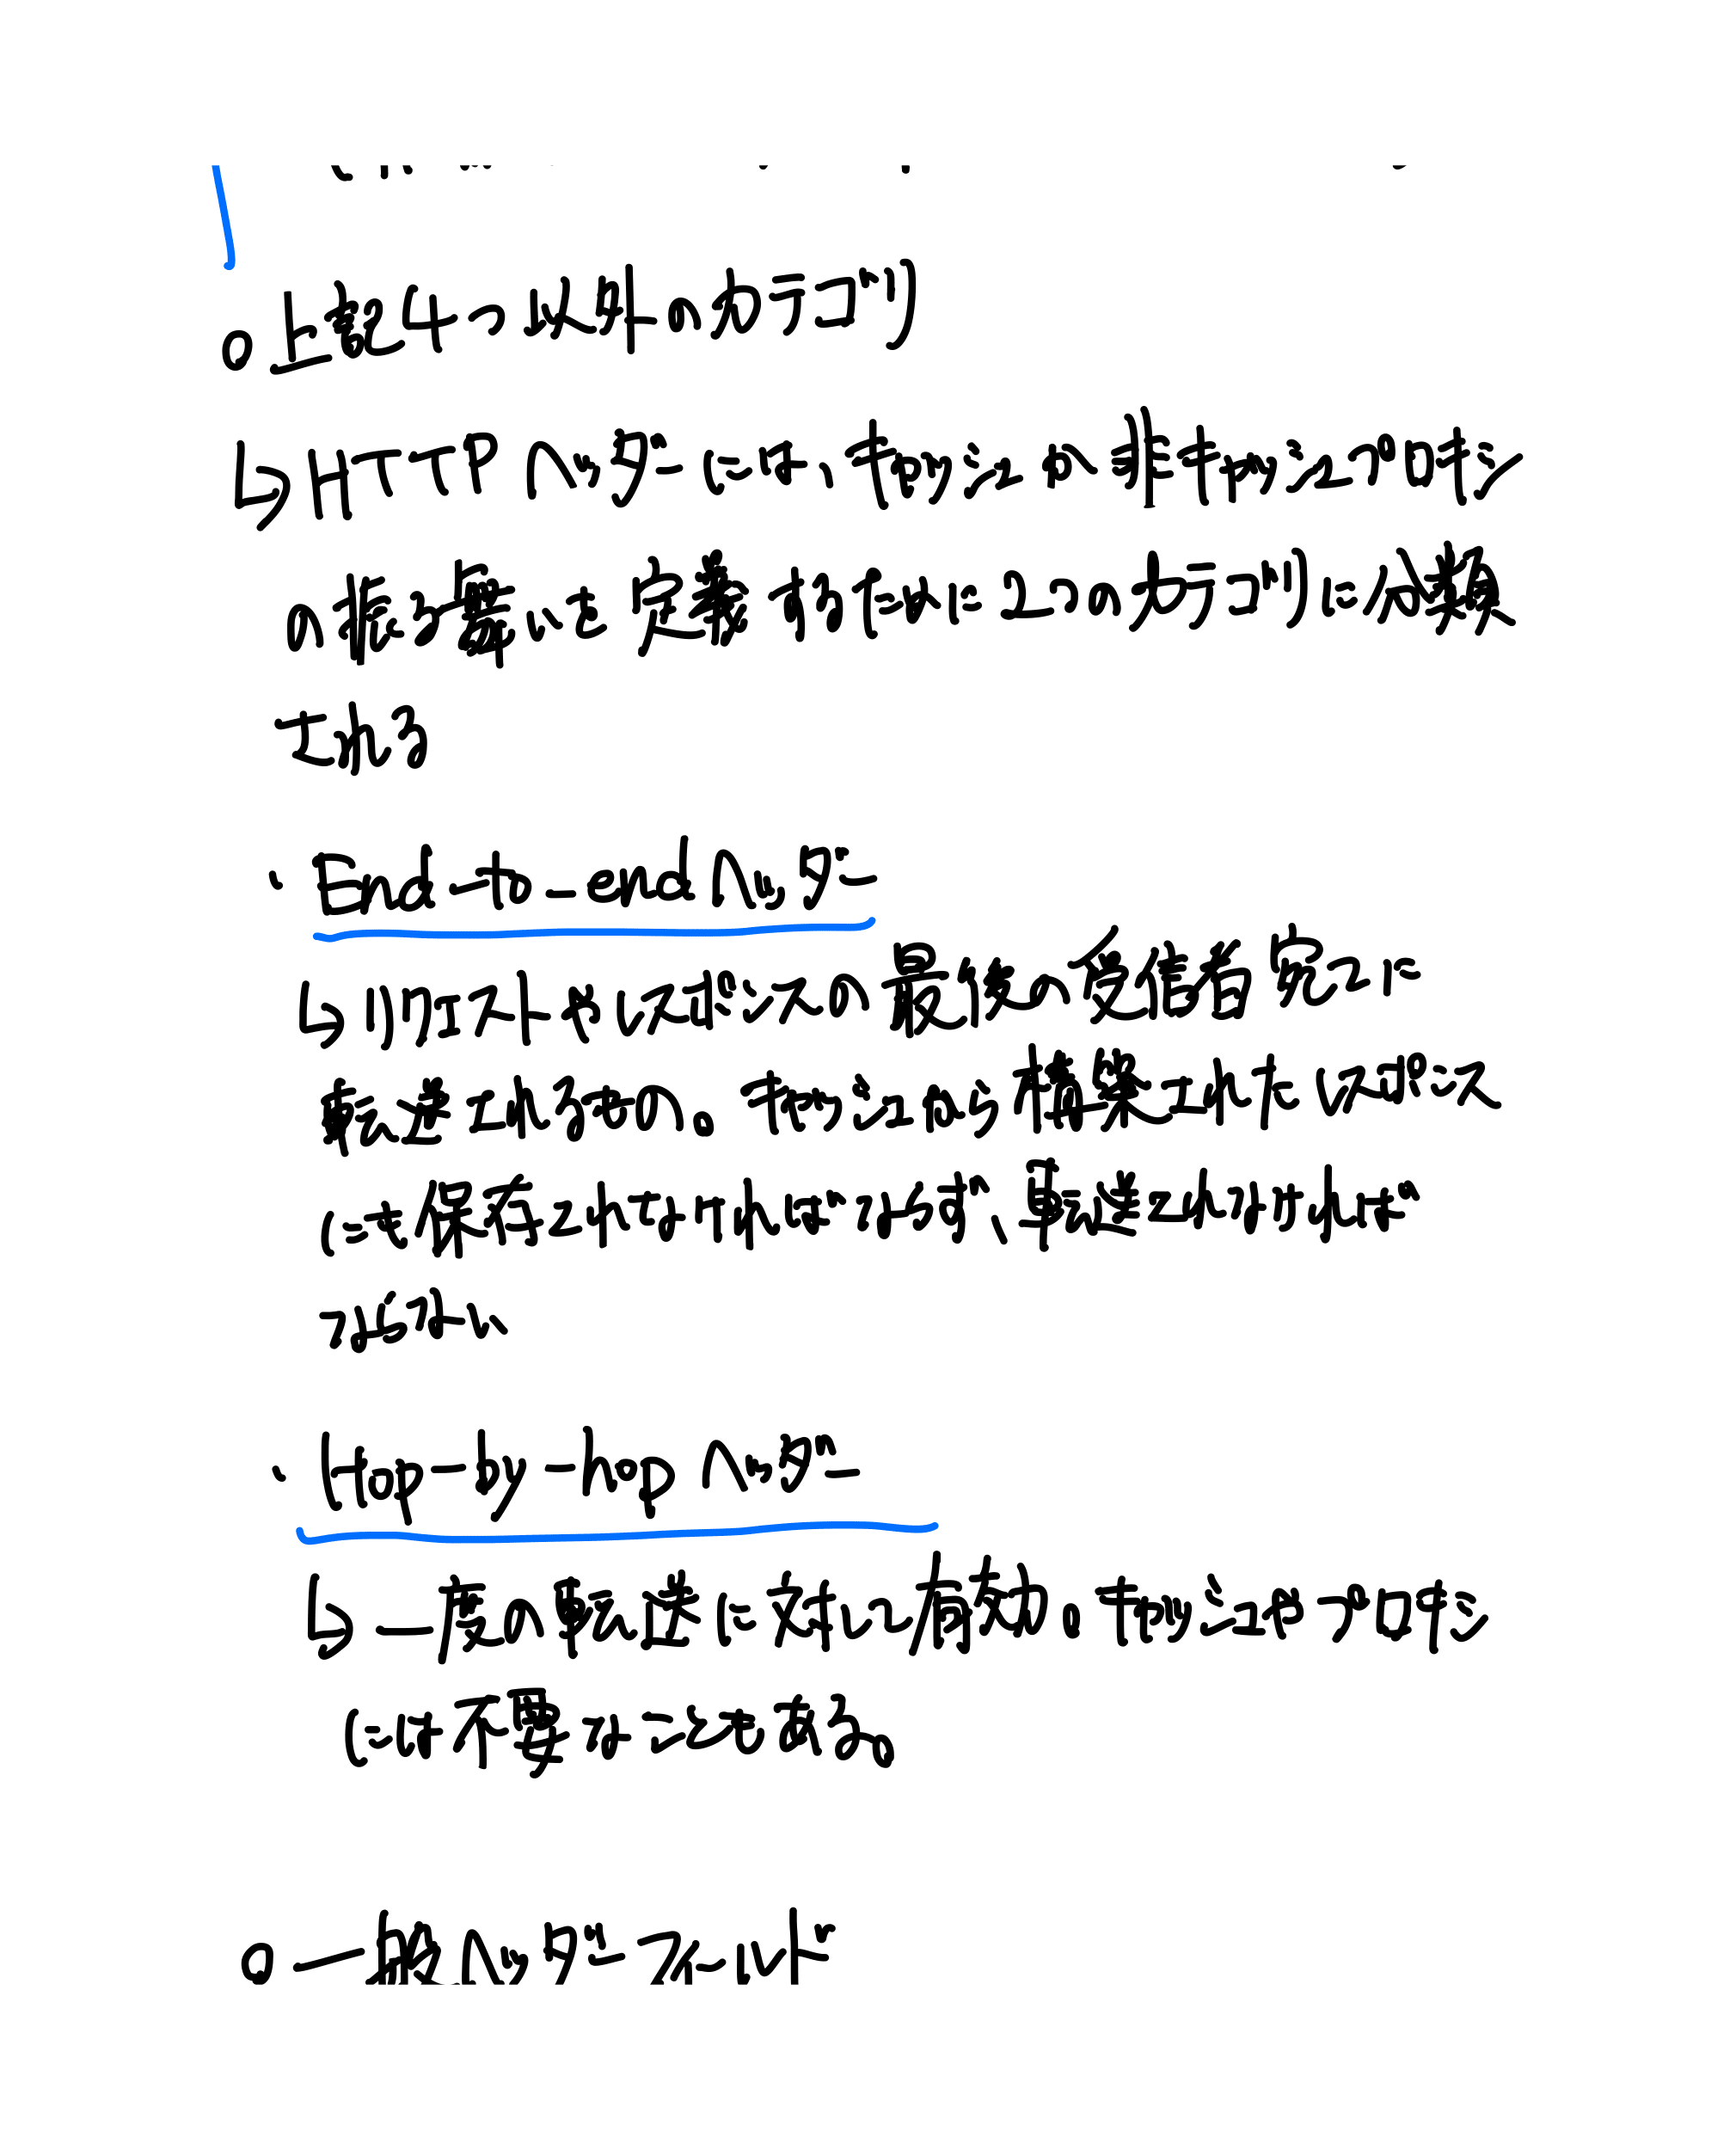 ○上記4つ以外のカテゴリ
↳HTTPヘッダーには、キャッシュや非キャッシュプロキシ
の振る舞いを定義するために2つのカテゴリに分類
される
・End-to-endヘッダー
↳リクエストやレスポンスの最後の受信者宛てに
転送されるもの。キャッシュから構築されたレスポンス
にも保存されなければならず、転送されなければ
ならない
・Hop-by-hopヘッダー
↳一度の転送に対して有効。キャッシュやプロキシ
には不要なこともある。
○一般ヘッダーフィールド